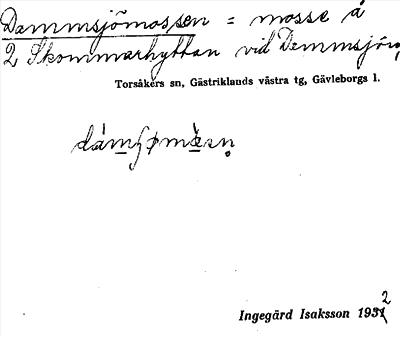 Dammsjömossen = mosse å
2 Skommarhyttan vid Dammsjön,
Torsåkers sn, Gästriklands västra tg, Gävleborgs l.
Ingegärd Isaksson 1932